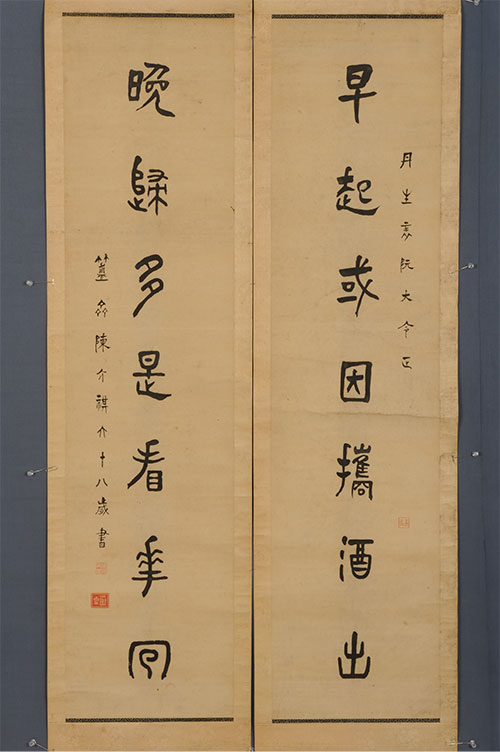 早起或因攜酒出
丹生 阮大 正
晚歸多是看華回
簠齋陳介祺六十八歲書